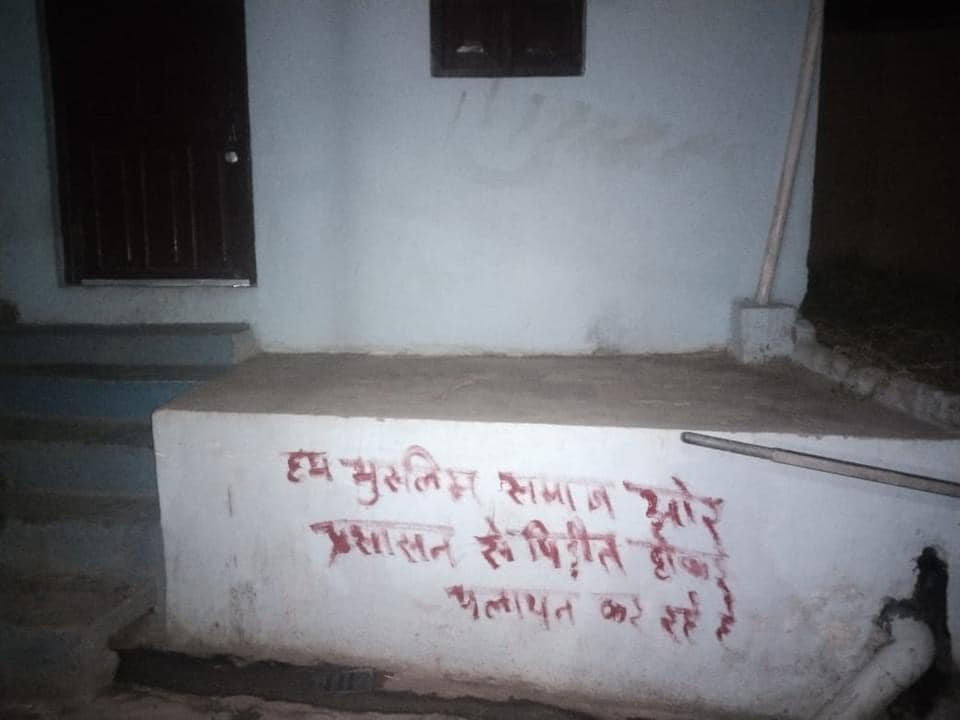 हम मुस्लिम समाज ओर
प्रसासन से पिड़ीत होकर
पलायन कर रहे है